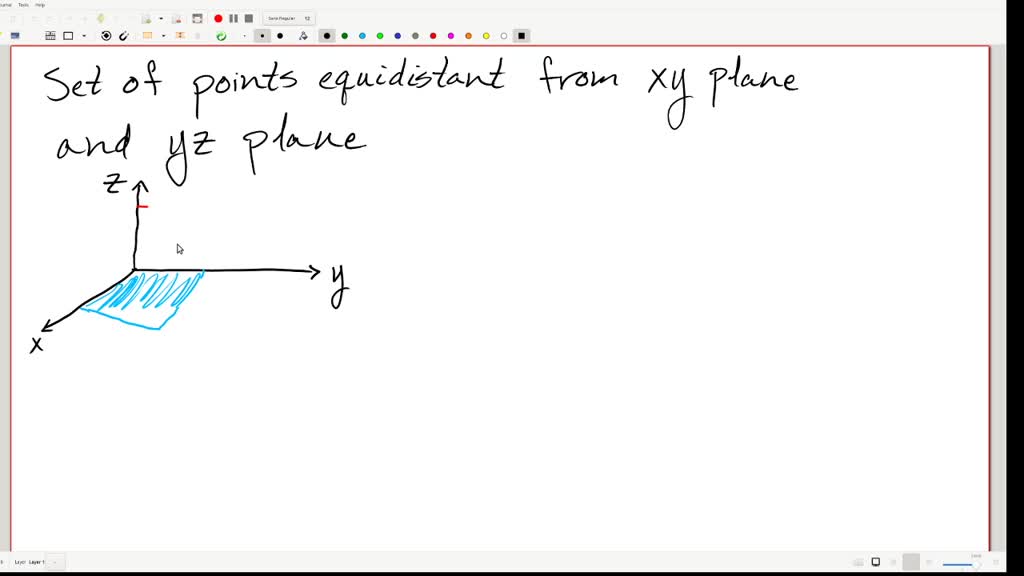 Journal Tools Help
Sans Regular 12
Set of points equidistant from xy plane
and yz plane
z
y
x
Layer Layer 1